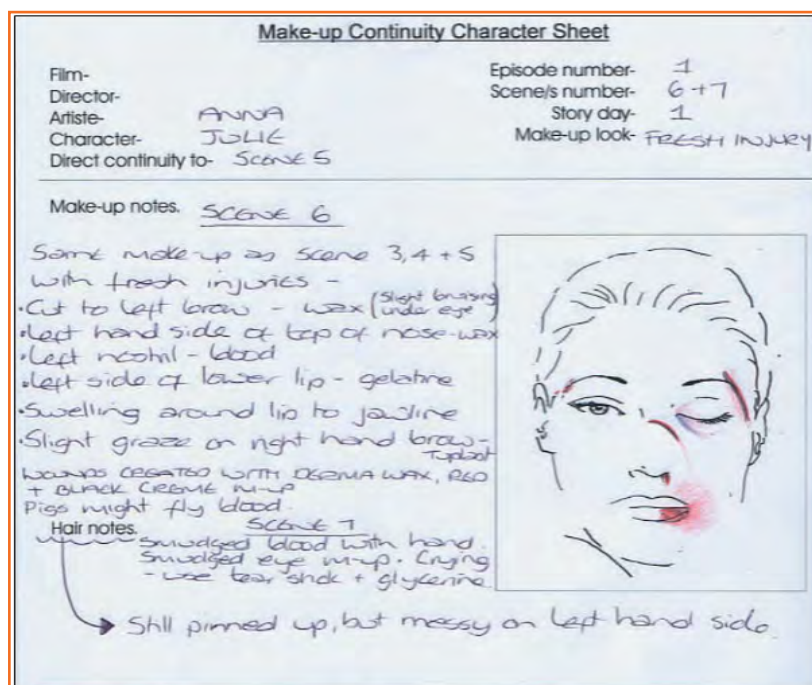 Make-up Continuity Character Sheet
Film-
Director-
Artiste- ANNA
Character- JULIE
Direct continuity to- SCENE 5
Episode number- 1
Scene/s number- 6+7
Story day- 1
Make-up look- FRESH INJURY
Make-up notes. SCENE 6
Same make-up as scene 3,4 + 5
with fresh injuries -
• Cut to left brow - wax (Slight bruising
under eye)
• Left hand side of top of nose-wax
• Left nostril - blood
• Left side of lower lip - gelatine
• Swelling around lip to jawline
• Slight graze on right hand brow-
Tuplast
WOUNDS CREATED WITH DERMA WAX, RED
+ BLACK CREME M-UP
Pigs might fly blood.
Hair notes. SCENE 7
Smudged blood with hand.
Smudged eye m-up. Crying
- use tear stick + glycerine
Still pinned up, but messy on left hand side.